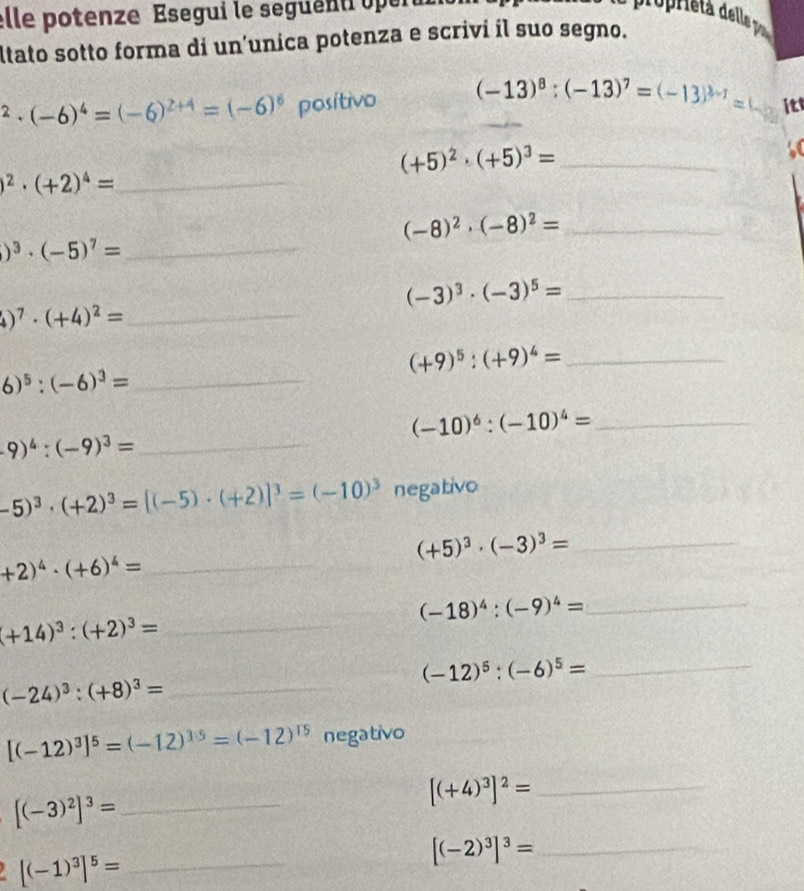 elle potenze Esegui le seguenti proprietà delle
ltato sotto forma di un'unica potenza e scrivi il suo segno.
² · (−6)⁴ = (−6)²⁺⁴ = (−6)⁶ positivo
(−13)⁸ : (−13)⁷ = (−13)⁸⁻⁷ = (
)² · (+2)⁴ = ______
(+5)² · (+5)³ = ______
)³ · (−5)⁷ = ______
(−8)² · (−8)² = ______
)⁷ · (+4)² = ______
(−3)³ · (−3)⁵ = ______
6)⁵ : (−6)³ = ______
(+9)⁵ : (+9)⁴ = ______
9)⁴ : (−9)³ = ______
(−10)⁶ : (−10)⁴ = ______
−5)³ · (+2)³ = [(−5) · (+2)]³ = (−10)³ negativo
+2)⁴ · (+6)⁴ = ______
(+5)³ · (−3)³ = ______
(+14)³ : (+2)³ = ______
(−18)⁴ : (−9)⁴ = ______
(−24)³ : (+8)³ = ______
(−12)⁵ : (−6)⁵ = ______
[(−12)³]⁵ = (−12)³·⁵ = (−12)¹⁵ negativo
[(−3)²]³ = ______
[(+4)³]² = ______
[(−1)³]⁵ = ______
[(−2)³]³ = ______